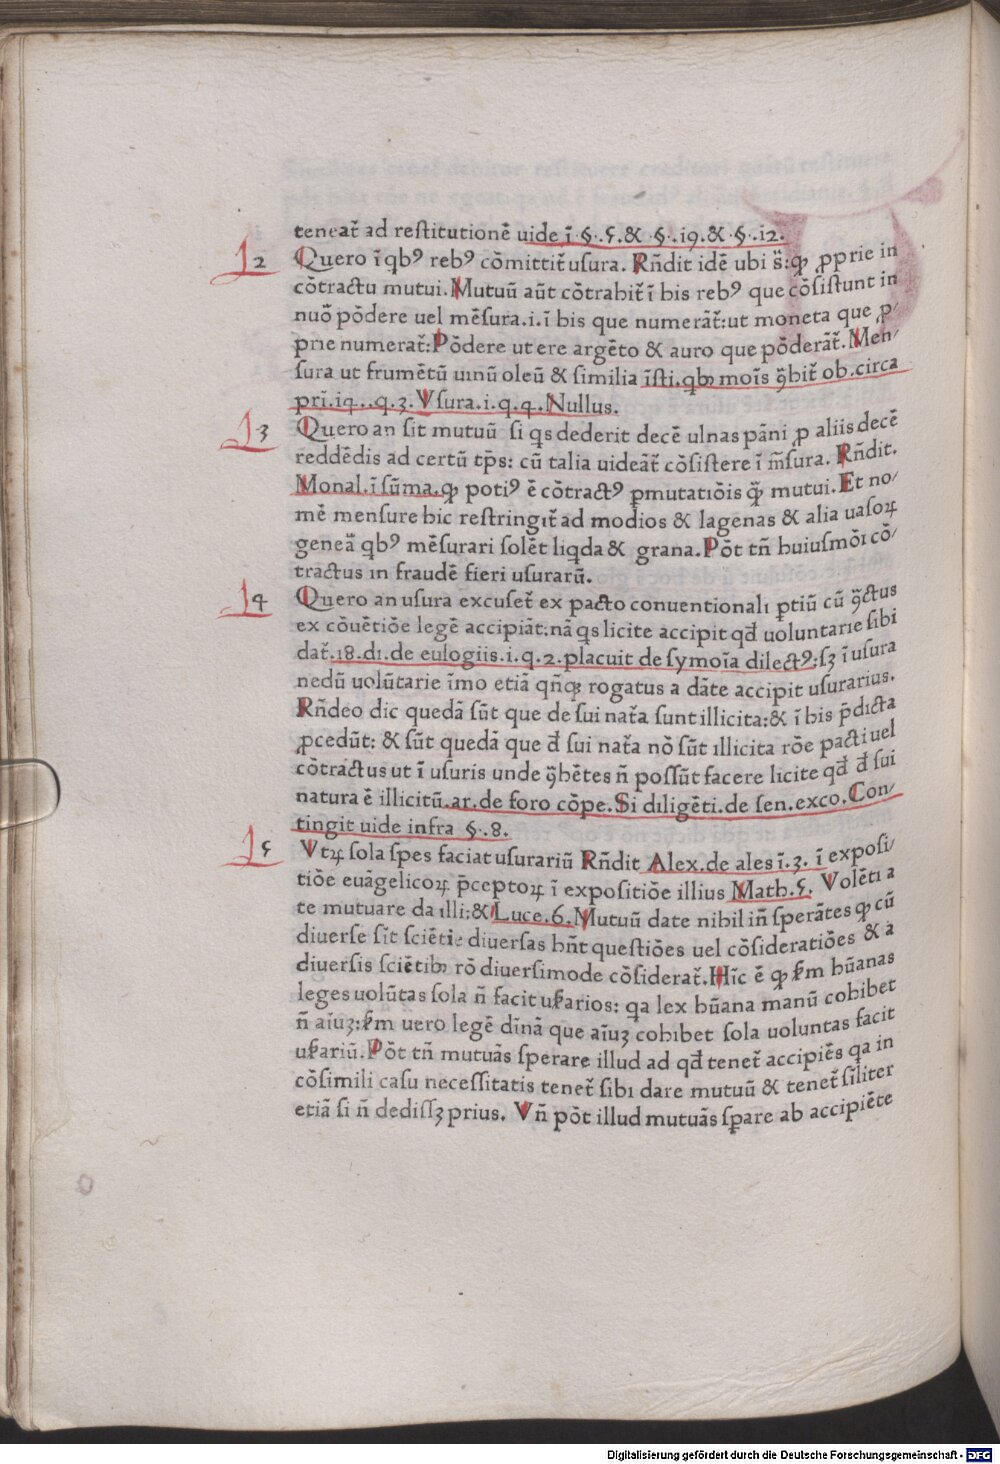 teneat᷑ ad reſtitutionē uide ī ·§·.5.&·§·.19.&·§·.12.
2 Quero ī qb⁹ reb⁹ cōmittit᷑ uſura. Rñdit idē ubi s̃:ꝙ ꝓprie in
cōtractu mutui. Mutuū aūt cōtrahit᷑ ī his reb⁹ que cōſiſtunt in
nūo pōdere uel mēſura.i.ī his que numerāt᷑:ut moneta que ꝓ/
prie numerat᷑:Pōdere ut ere argēto & auro que pōderāt᷑. Men/
ſura ut frumētū uinū oleū & ſimilia īſti.qb₉ moīs ꝯ̄hit᷑ ob.circa
pri.14..q.3.Vſura.i.q.4.Nullus.
3 Quero an ſit mutuū ſi qs dederit decē ulnas pāni ꝓ aliis decē
reddēdis ad certū tp̄s: cū talia uideāt᷑ cōſiſtere ī m̄ſura. Rñdit.
Monal.ī ſūma.ꝙ poti⁹ ē cōtract⁹ ꝑmutatiōis q̄ꝫ mutui.Et no/
mē menſure hic reſtringit᷑ ad modios & lagenas & alia uaſoꝝ
genea᷑ qb⁹ mēſurari ſolēt liqda & grana.Pōt tn̄ huiuſmōi cō/
tractus in fraudē fieri uſurarū.
4 Quero an uſura excuſet᷑ ex pacto conuentionali ꝑtiū cū ꝯ̄ctus
ex cōuētiōe legē accipiāt:nā qs licite accipit qđ uoluntarie ſibi
dat᷑.18.di.de eulogiis.i.q.2.placuit de ſymoīa dilect⁹:ſꝫ ī uſura
nedū uolūtarie īmo etiā qñqꝫ rogatus a dāte accipit uſurarius.
Rñdeo dic quedā ſūt que de ſui nat᷑a ſunt illicita:& ī his p̄dicta
ꝓcedūt: & ſūt quedā que đ ſui nat᷑a nō ſūt illicita rōe pacti uel
cōtractus ut ī uſuris unde ꝯ̄hētes ñ poſſūt facere licite qđ đ ſui
natura ē illicitū.ar.de foro cōpe.Si diligēti.de ſen.exco.Con/
tingit uide infra §.8.
5 Vtꝝ ſola ſpes faciat uſurariū Rñdit Alex.de ales ī.3. ī expoſi/
tiōe euāgelicoꝝ p̄ceptoꝝ ī expoſitiōe illius Math.5. Volēti a
te mutuare da illi:& Luce.6.Mutuū date nihil iñ ſperātes ꝙ cū
diuerſe ſīt ſciētie diuerſas hñt queſtiōes uel cōſideratiōes & a
diuerſis ſciētib₉ rō diuerſimode cōſiderat᷑.Hīc ē ꝙ ẜm hūanas
leges uolūtas ſola ñ facit uẜarios: qa lex hūana manū cohibet
ñ aīuꝫ:ẜm uero legē dīnā que aīuꝫ cohibet ſola uoluntas facit
uẜariū.Pōt tn̄ mutuās ſperare illud ad qđ tenet᷑ accipiēs qa in
cōſimili caſu neceſſitatis tenet᷑ ſibi dare mutuū & tenet᷑ ſīliter
etiā ſi ñ dediſſꝫ prius. Vñ pōt illud mutuās ſꝑare ab accipiēte
Digitalisierung gefördert durch die Deutsche Forschungsgemeinschaft - DFG